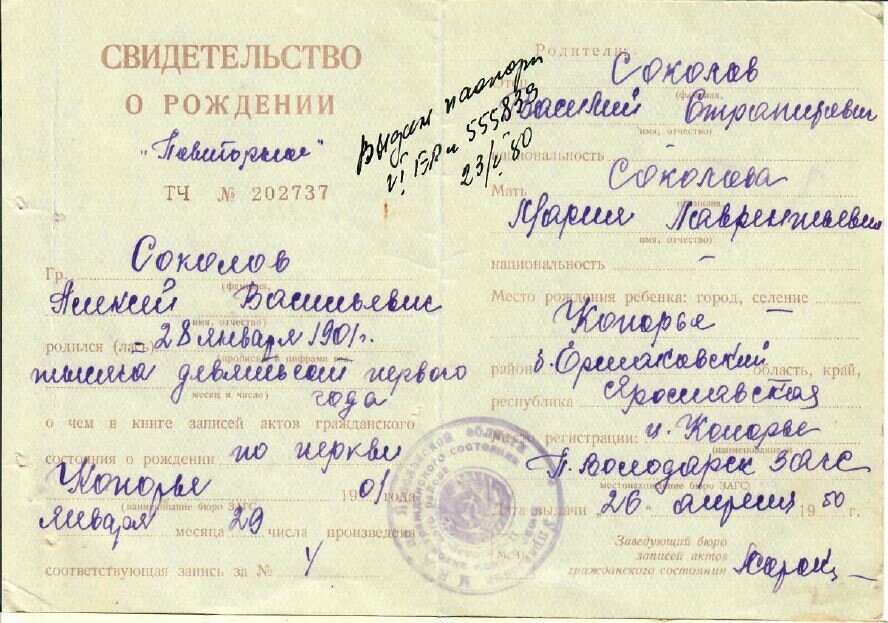 СВИДЕТЕЛЬСТВО
О РОЖДЕНИИ
"Повторное"
ТЧ № 202737
Выдан паспорт
VI 555839
23/V 80
Гр. Соколов
(фамилия,
Алексей Васильевич
имя, отчество)
родился (лась) 28 января 1901 г.
(прописью и цифрами год,
тысяча девятьсот первого
месяц и число) года
о чем в книге записей актов гражданского
состояния о рождении по церкви
Копорье 1901 года
(наименование бюро ЗАГС)
января месяца 29 числа произведена
соответствующая запись за № 4
Родители:
Отец Соколов
(фамилия,
Василий
имя, отчество)
национальность
Мать Соколова
(фамилия,
Мария Лаврентьевна
имя, отчество)
национальность –
Место рождения ребенка: город, селение –
Копорье
район б. Ермаковский область, край,
республика Ярославская
Место регистрации: ц. Копорье
(наименование и
П. Володарск ЗАГС
местонахождение бюро ЗАГС)
Дата выдачи „26 апреля 1950 г.
М. п.
Заведующий бюро
записей актов
гражданского состояния